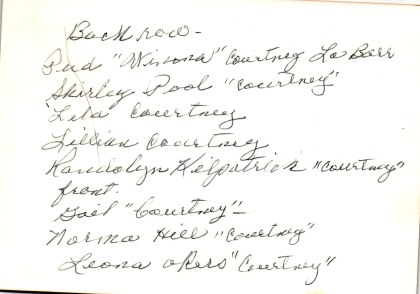 Back row -
Pud "Winona" Courtney La Barr
Shirley Pool "Courtney"
Lila Courtney
Lillian Courtney
Randolyn Kilpatrick "Courtney"
front.
Gail "Courtney" -
Norma Hill "Courtney"
Leona Akers "Courtney"